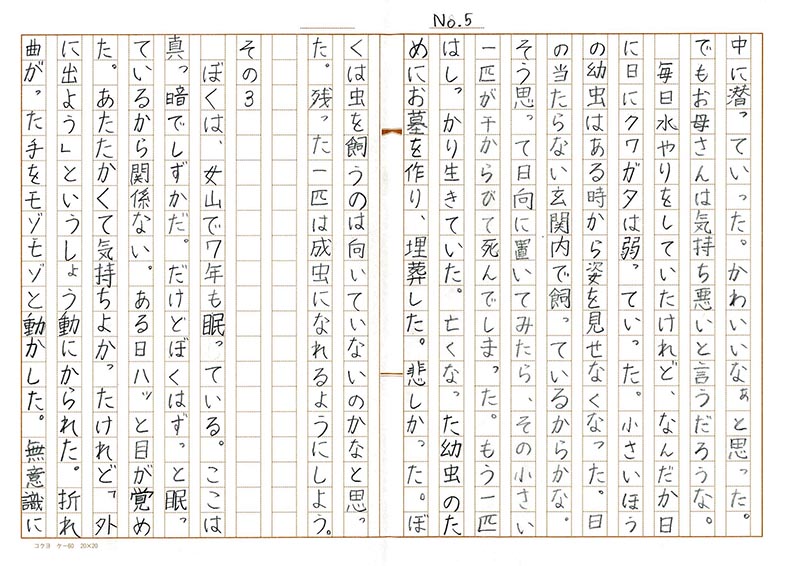 No.5
中に潜っていった。かわいいなぁと思った。
でもお母さんは気持ち悪いと言うだろうな。
毎日水やりをしていたけれど、なんだか日
に日にクワガタは弱っていった。小さいほう
の幼虫はある時から姿を見せなくなった。日
の当たらない玄関内で飼っているからかな。
そう思って日向に置いてみたら、その小さい
一匹が干からびて死んでしまった。もう一匹
はしっかり生きていた。亡くなった幼虫のた
めにお墓を作り、埋葬した。悲しかった。ぼ
くは虫を飼うのは向いていないのかなと思っ
た。残った一匹は成虫になれるようにしよう。
その3
ぼくは、女山で7年も眠っている。ここは
真っ暗でしずかだ。だけどぼくはずっと眠っ
ているから関係ない。ある日ハッと目が覚め
た。あたたかくて気持ちよかったけれど「外
に出よう」というしょう動にかられた。折れ
曲がった手をモゾモゾと動かした。無意識に
コクヨ ケー60 20×20